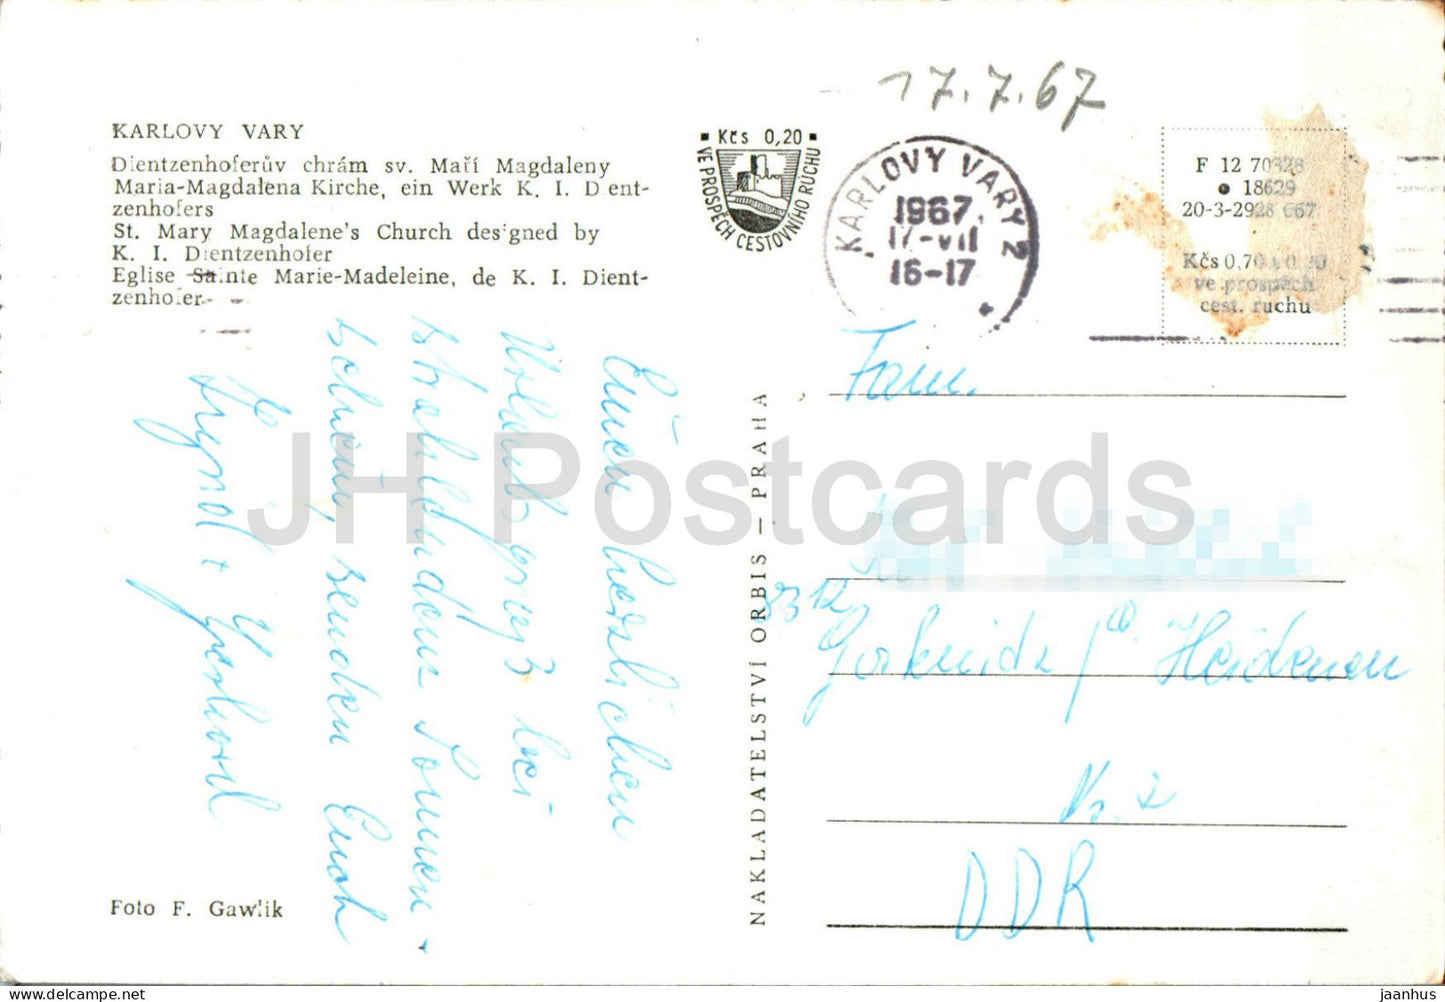 KARLOVY VARY
Dientzenhoferův chrám sv. Maří Magdaleny
Maria-Magdalena Kirche, ein Werk K. I. D entzenhofers
St. Mary Magdalene's Church designed by
K. I. Dientzenhofer
Eglise Sainte Marie-Madeleine, de K. I. Dientzenhofer
17.7.67
Kčs 0,20
VE PROSPĚCH CESTOVNÍHO RUCHU
KARLOVY VARY 2
1967
17.-VII
16-17
F 12 70328
18629
20-3-2928 667
Kčs 0,70 + 0,20
ve prospěch
cest. ruchu
Einen herzlichen
Urlaubsgruß bei
strahlendem Sonnen-
schein, senden Euch
+
Fam.
8312
/ Heidenau
Nr. 2
DDR
NAKLADATELSTVÍ ORBIS — PRAHA
Foto F. Gawlik
JH Postcards
www.delcampe.net
jaanhus